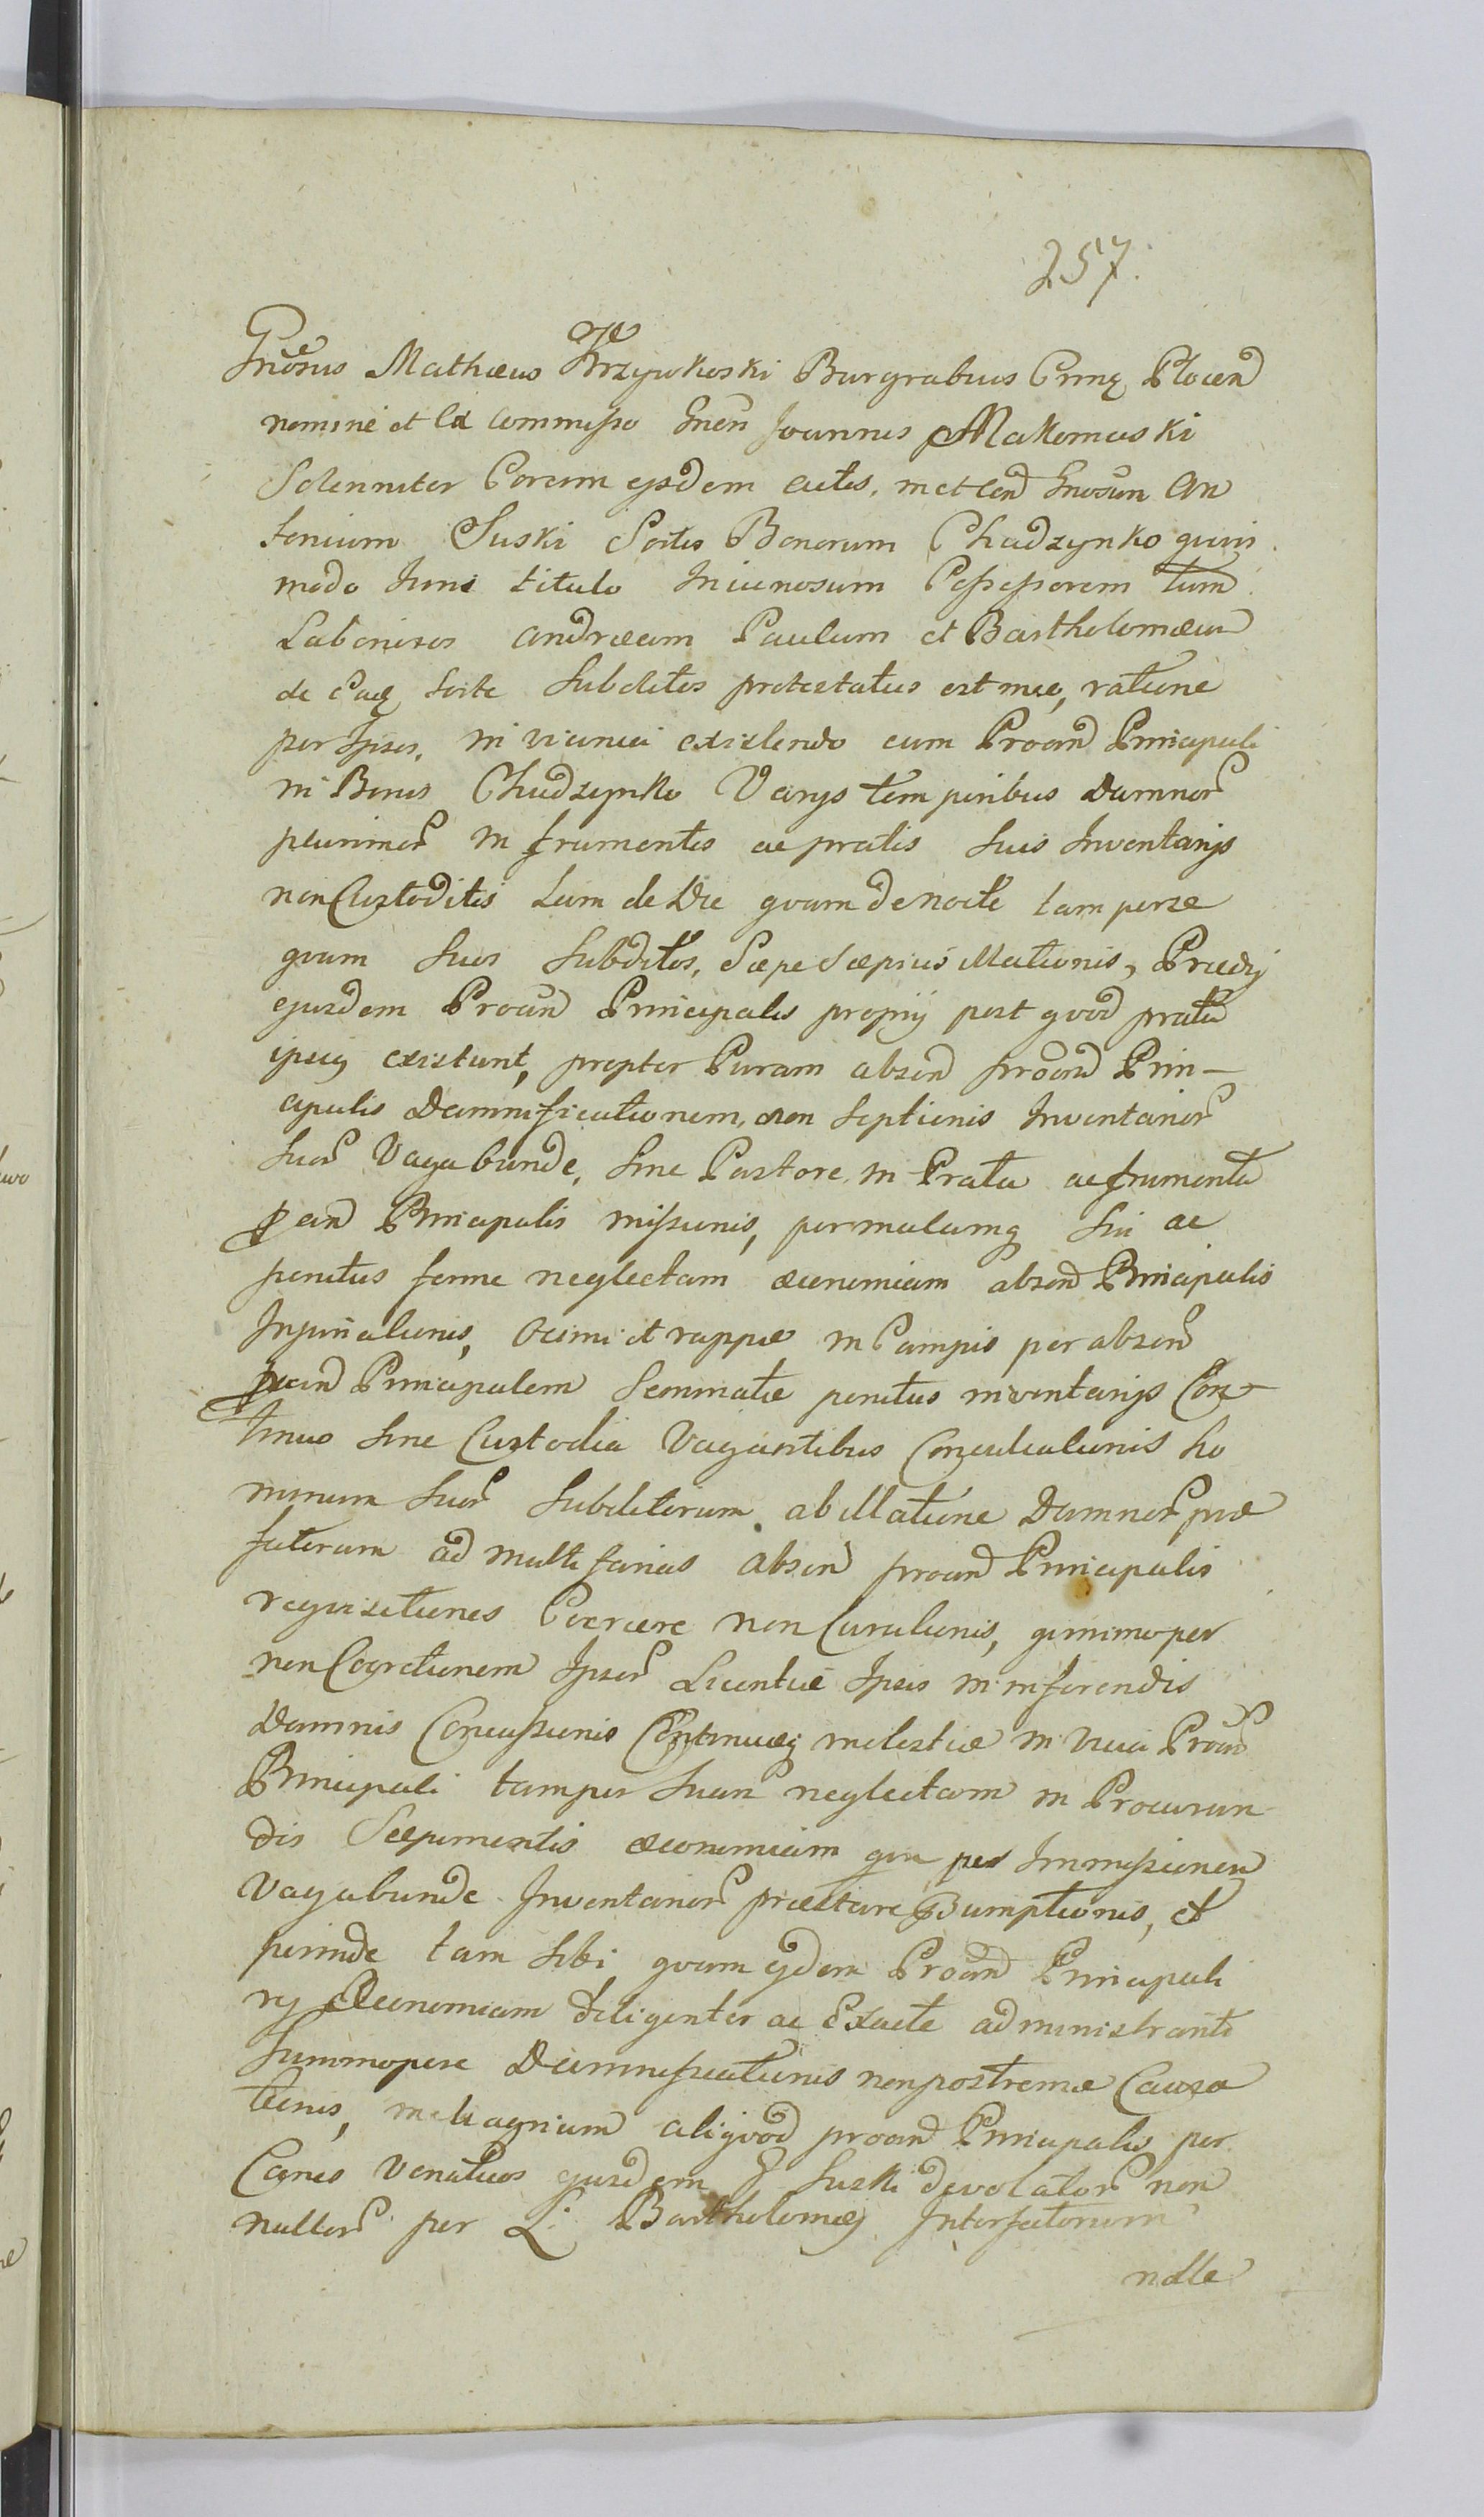 257.
Gnōsus Mathæus Krzywkoski Burgrabius Crinę Plocen
nomine et Ex commisso Gnōsi Joannis Makomaski
Solenniter Coram ejsdem actis, in et con Gnosum An
tonium Suski Sortis Bonorum Chudzynko quovis
modo Juris titulo Vicinosum Possessorem tum
Laboriosos Andream Paulum et Bartholomæum
de eaq sorte Subditos protestatus est ratione
per Ipsos, in vicinia existendo cum Procan Principali
in Bonis Chudzynko Varys temporibus damnor
plurimor in frumentis ac pratis suis Inventarys
non Custoditis tam de Die quam de nocte tam per se
quam suos Subditos, Sæpe Sæpius illationis, Prædij
ejusdem Procan Principalis proprij post quod prata
ipsius existunt, propter Puram absen procan Prin-
cipalis Damnificationem, non Septionis Inventarior
suor Vagabunde, sine Pastore in Prata ac frumenta
pcan Principalis missionis, per malamq sui ac
penitus ferme neglectam æconomiam absen Principalis
Injuriationis, et rappæ in Campis per absen
pcan Principalem Seminatæ penitus inventarijs Con-
tinuo sine Custodia Vagantibus Conculcationis ho
minum suor Subditorum ab illatione Damnor præ
fatorum ad multifarias absen procan Principalis
requisitiones Coercere non Curationis, quinimo per
non Coercitionem Ipsor Licentiæ Ipsis in inferendis
Damnis Concessionis Continuæq molestiæ in Procan
Principali tam per suam neglectam in Procuran
dis Sæpimentis æconomiam qm per Immissionem
Vagabunde Inventarior præstare præsumptionis, et
perinde tam sibi quam ejdem Procan Principali
rei Æconomiam diligenter ac Exacte administranti
Summopere Damnificationis non postremæ Causa
tionis, aliquod procan Principalis per
Canes Venaticos ejusdem G Suski devolator non
nullor per L: Bartholomæj Interfectorum
nolle